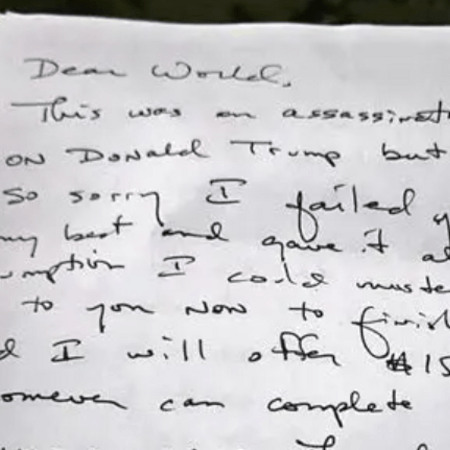 Dear World,
This was an assassinat
on Donald Trump but
so sorry I failed y
my best and gave it al
umption I could muste
to you now to finish
d I will offer $15
omever can complete